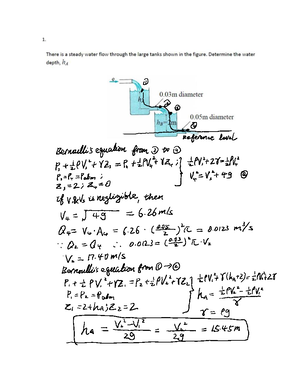 1.
There is a steady water flow through the large tanks shown in the figure. Determine the water
depth, h_A
h_A
0.03m diameter
h_B=2m
0.05m diameter
Reference level
Bernoulli's equation from ③ to ④
P₃ + ½ρV₃² + γZ₃ = P₄ + ½ρV₄² + γZ₄ ;
P₃ = P₄ = Patm ;
Z₃ = 2 ; Z₄ = 0
½ρV₃² + 2γ = ½ρV₄²
V₄² = V₃² + 4g
If V₁ & V₃ is negligible, then
V₄ = √4g = 6.26 m/s
Q₄ = V₄·A₄ = 6.26 · (0.05/2)² π = 0.0123 m³/s
∵ Q₂ = Q₄ ∴ 0.0123 = (0.03/2)² π · V₂
V₂ = 17.40 m/s
Bernoulli's equation from ① → ②
P₁ + ½ρV₁² + γZ₁ = P₂ + ½ρV₂² + γZ₂
P₁ = P₂ = Patm
Z₁ = 2 + h_A ; Z₂ = 2
½ρV₁² + γ(h_A+2) = ½ρV₂² + 2γ
h_A = (½ρV₂² − ½ρV₁²)/γ
γ = ρg
h_A = (V₂² − V₁²)/2g = V₂²/2g = 15.45 m